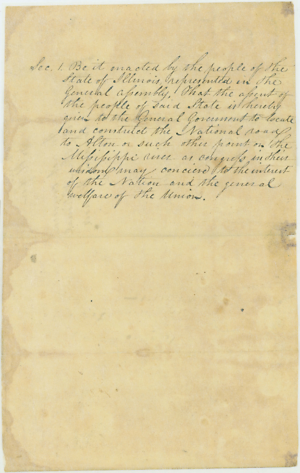 Sec. 1 Be it enacted by the people of the
State of Illinois represented in the
General Assembly, That the assent of
the people of said State is hereby
given to the General Goverment to locate
and construct the National road
to Alton or such other point on the
Mississippi river as congress in their
wisdom may conceive to the interest
of the Nation and the general
welfare of the Union.